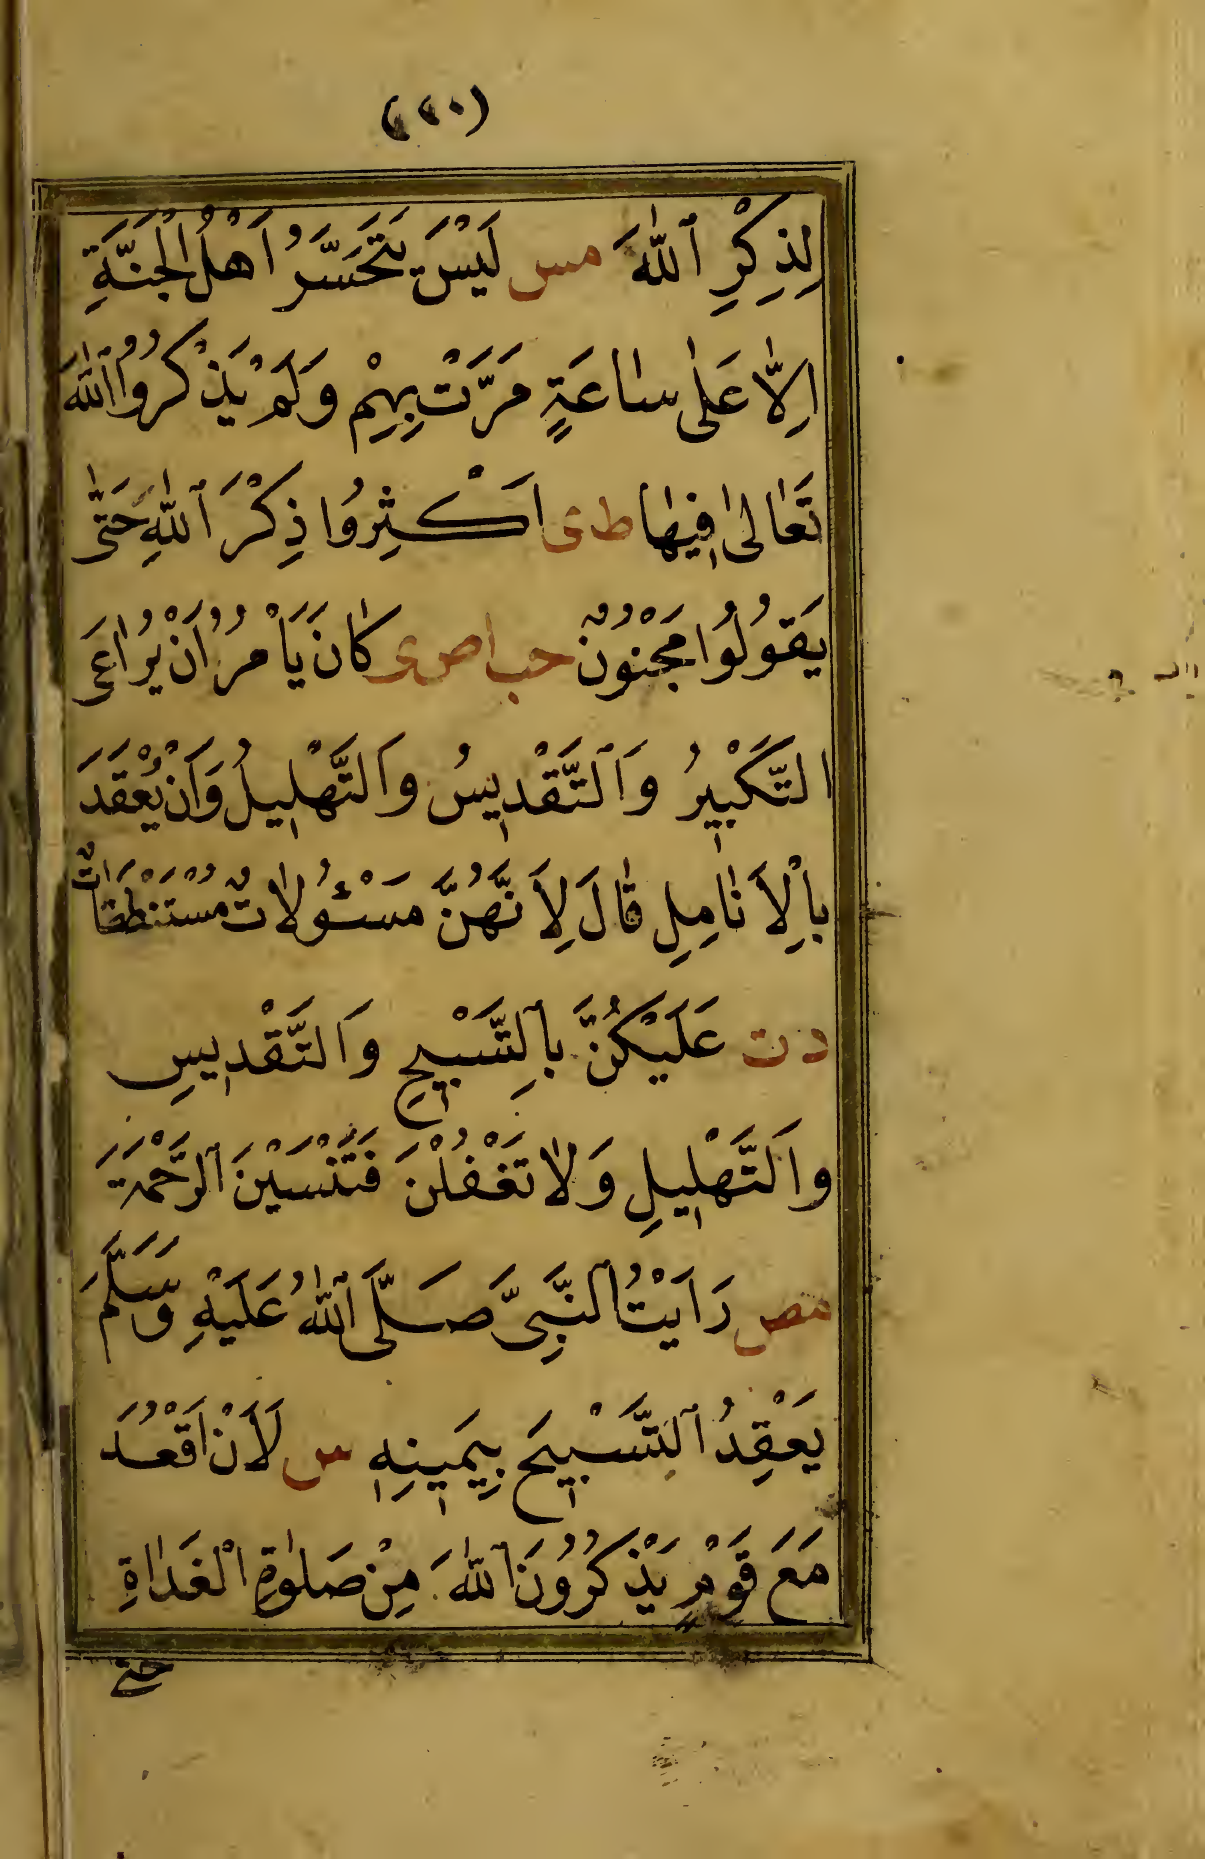 (٢٢٠)
لِذِكْرِ ٱللّٰهَ مس لَيْسَ يَتَحَسَّرُ اَهْلُ الْجَنَّةِ
اِلاّٰ عَلٰى سٰاعَةٍ مَرَّتْ بِهِمْ وَلَمْ يَذْكُرُوا ٱللّٰهَ
تَعٰالىٰ فِيهٰا ط ى اَكْثِرُوا ذِكْرَ ٱللّٰهِ حَتّٰى
يَقُولُوا مَجْنُونٌ حب ا ص ى كٰانَ يَاْمُرُ اَنْ يُرٰاعَى
التَّكْبِيرُ وَٱلتَّقْدِيسُ وَالتَّهْلِيلُ وَاَنْ يُعْقَدَ
بِاْلاَنٰامِلِ قٰالَ لِاَنَّهُنَّ مَسْئُولاٰتٌ مُسْتَنْطَقَاتٌ
د ت عَلَيْكُنَّ بِٱلتَّسْبِيحِ وَالتَّقْدِيسِ
وَالتَّهْلِيلِ وَلاٰ تَغْفُلْنَ فَتَنْسَيْنَ ٱلرَّحْمَةَ
مص رَاَيْتُ ٱلنَّبِىَّ صَلَّى ٱللّٰهُ عَلَيْهِ وَسَلَّمَ
يَعْقِدُ ٱلتَّسْبِيحَ بِيَمِينِهِ س لَاَنْ اَقْعُدَ
مَعَ قَوْمٍ يَذْكُرُونَ ٱللّٰهَ مِنْ صَلٰوةِ الْغَدٰاةِ
حتى